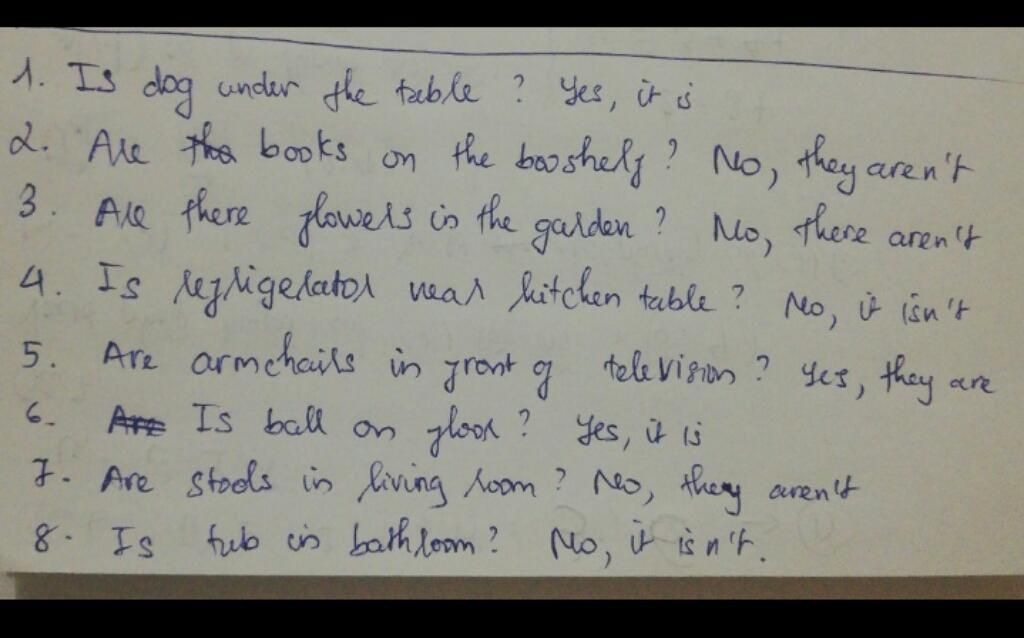 1. Is dog under the table ? Yes, it is
2. Are the books on the booshelf ? No, they aren't
3. Are there flowers in the garden ? No, there aren't
4. Is refrigerator near kitchen table ? No, it isn't
5. Are armchairs in front of television ? Yes, they are
6. Are Is ball on floor ? Yes, it is
7. Are stools in living room ? No, they aren't
8. Is tub in bathroom ? No, it isn't.